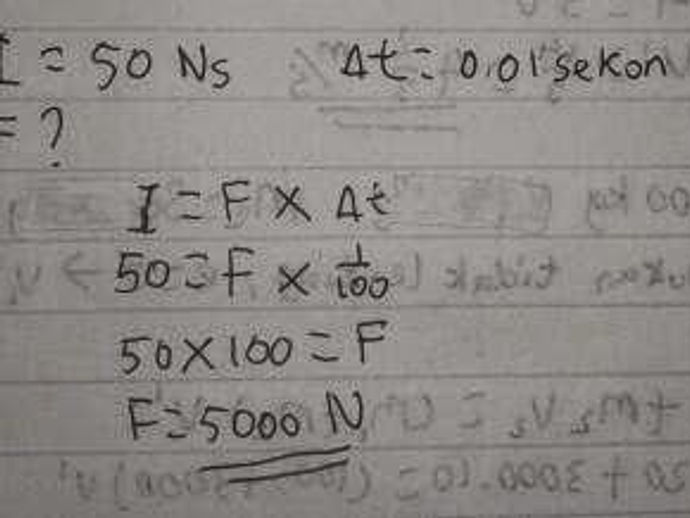 I = 50 Ns Δt = 0,01 sekon
= ?
I = F × Δt
50 = F × 1/100
50 × 100 = F
F = 5000 N